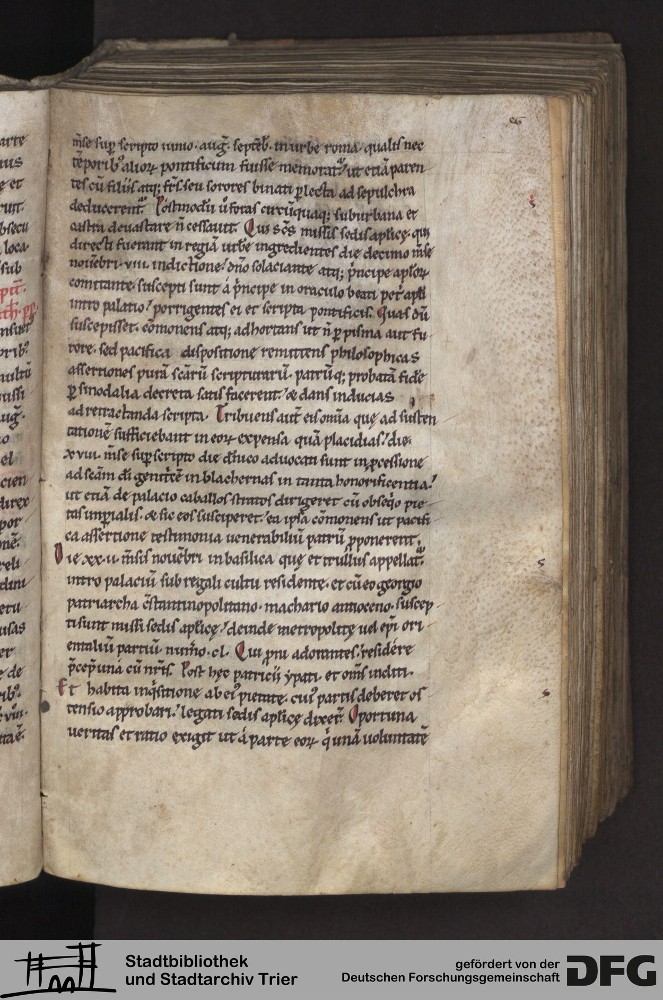 m̅se sup̲ scripto iunio · aug̅ · septe̅b̅ · in urbe roma · qualis nec
te̅porib; alioꝝ pontificum fuisse memorat᷑ / ut etia̅ paren
tes cu̅ filiis atq; fr̅s seu sorores binati p̲ lecta ad sepulchra
deducerent᷑ Postmodu̅ u̅ foras circu̅quaq; suburbana et
castra deuastare n̅ cessauit. Qui s̅c̅s missis sedis aplic̨e · qui
directi fuerant in regia̅ urbe̅ ingredientes die decimo m̅se
noue̅bri · viii · indictione / dn̅o solaciante atq; p̍ncipe apl̅oꝝ
comitante suscepti sunt a p̍ncipe in oraculo beati petri apl̅i
intro palatio / porrigentes ei et scripta pontificis. Quas du̅
suscepisset · co̅monens atq; adhortans ut n̅ p̲ pisma aut fu
rore · sed pacifica dispositione remittens philosophicas
assertiones pura̅ sc̅aru̅ scripturaru̅ · patru̅q; probata̅ fide̅
p̲ sinodalia decreta satis facerent / & dans inducias
ad retractanda scripta. Tribuens aut̅ eis om̅ia que̜ ad susten
tatione̅ sufficiebant in eoꝝ expensa qua̅ placidias / die
xviii · m̅se sup̲ scripto die d̅nico aduocati sunt in p̲cessione
ad sc̅am di̅ genitrice̅ in blachernas in tanta honorificentia /
ut etia̅ de palacio caballos stratos dirigeret cu̅ obseq̍o pie
tas imp̲ialis · & sic eos susciperet / ea ipsa co̅monens ut pacifi
ca assertione testimonia uenerabiliu̅ patru̅ p̲ponerent ·
Die xx·ii · m̅sis noue̅bri in basilica que̜ et trullus appellat᷑
intro palaciu̅ sub regali cultu residente · et cu̅ eo georgio
patriarcha c̅stantinopolitano · machario antioceno · suscep
ti sunt missi sedis aplic̨e / deinde metropolite̜ uel ep̅i ori
entaliu̅ partiu̅ num̅o · cl · Qui p̍mu adorantes / residere
p̲cep̍ una cu̅ nr̅is. Post hec patricii ypati · et om̅is inditi ·
Et habita inq̍sitione ab ei᷒ pietate · cui᷒ partis deberet os
tensio approbari / legati sedis aplic̨e dixer̅t Oportuna
ueritas et ratio exigit ut a̍ parte eoꝝ q̍ una̅ uoluntate̅
Stadtbibliothek
und Stadtarchiv Trier
gefördert von der
Deutschen Forschungsgemeinschaft
DFG